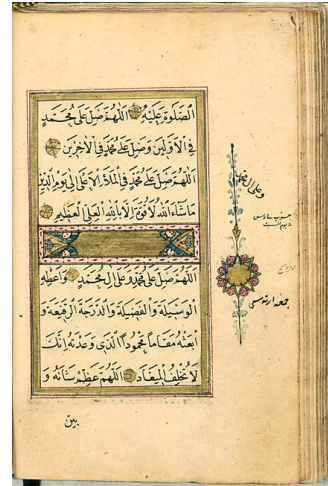 الصَّلٰوةِ عَلَيْهِ اَللّٰهُمَّ صَلِّ عَلٰى مُحَمَّدٍ
فِي الْاَوَّلِينَ وَصَلِّ عَلٰى مُحَمَّدٍ فِي الْاٰخِرِينَ
اَللّٰهُمَّ صَلِّ عَلٰى مُحَمَّدٍ فِي الْمَلَاءِ الْاَعْلٰى اِلٰى يَوْمِ الدِّينِ
مَا شَاءَ اللهُ لَا قُوَّةَ اِلَّا بِاللهِ الْعَلِيِّ الْعَظِيمِ
اَللّٰهُمَّ صَلِّ عَلٰى مُحَمَّدٍ وَعَلٰى اٰلِ مُحَمَّدٍ وَاَعْطِهِ
الْوَسِيلَةَ وَالْفَضِيلَةَ وَالدَّرَجَةَ الرَّفِيعَةَ وَ
ابْعَثْهُ مَقَامًا مَحْمُودًا الَّذِي وَعَدْتَهُ اِنَّكَ
لَا تُخْلِفُ الْمِيعَادَ اَللّٰهُمَّ عَظِّمْ شَانَهُ وَ
بَيِّنْ
وعلى آل محمد